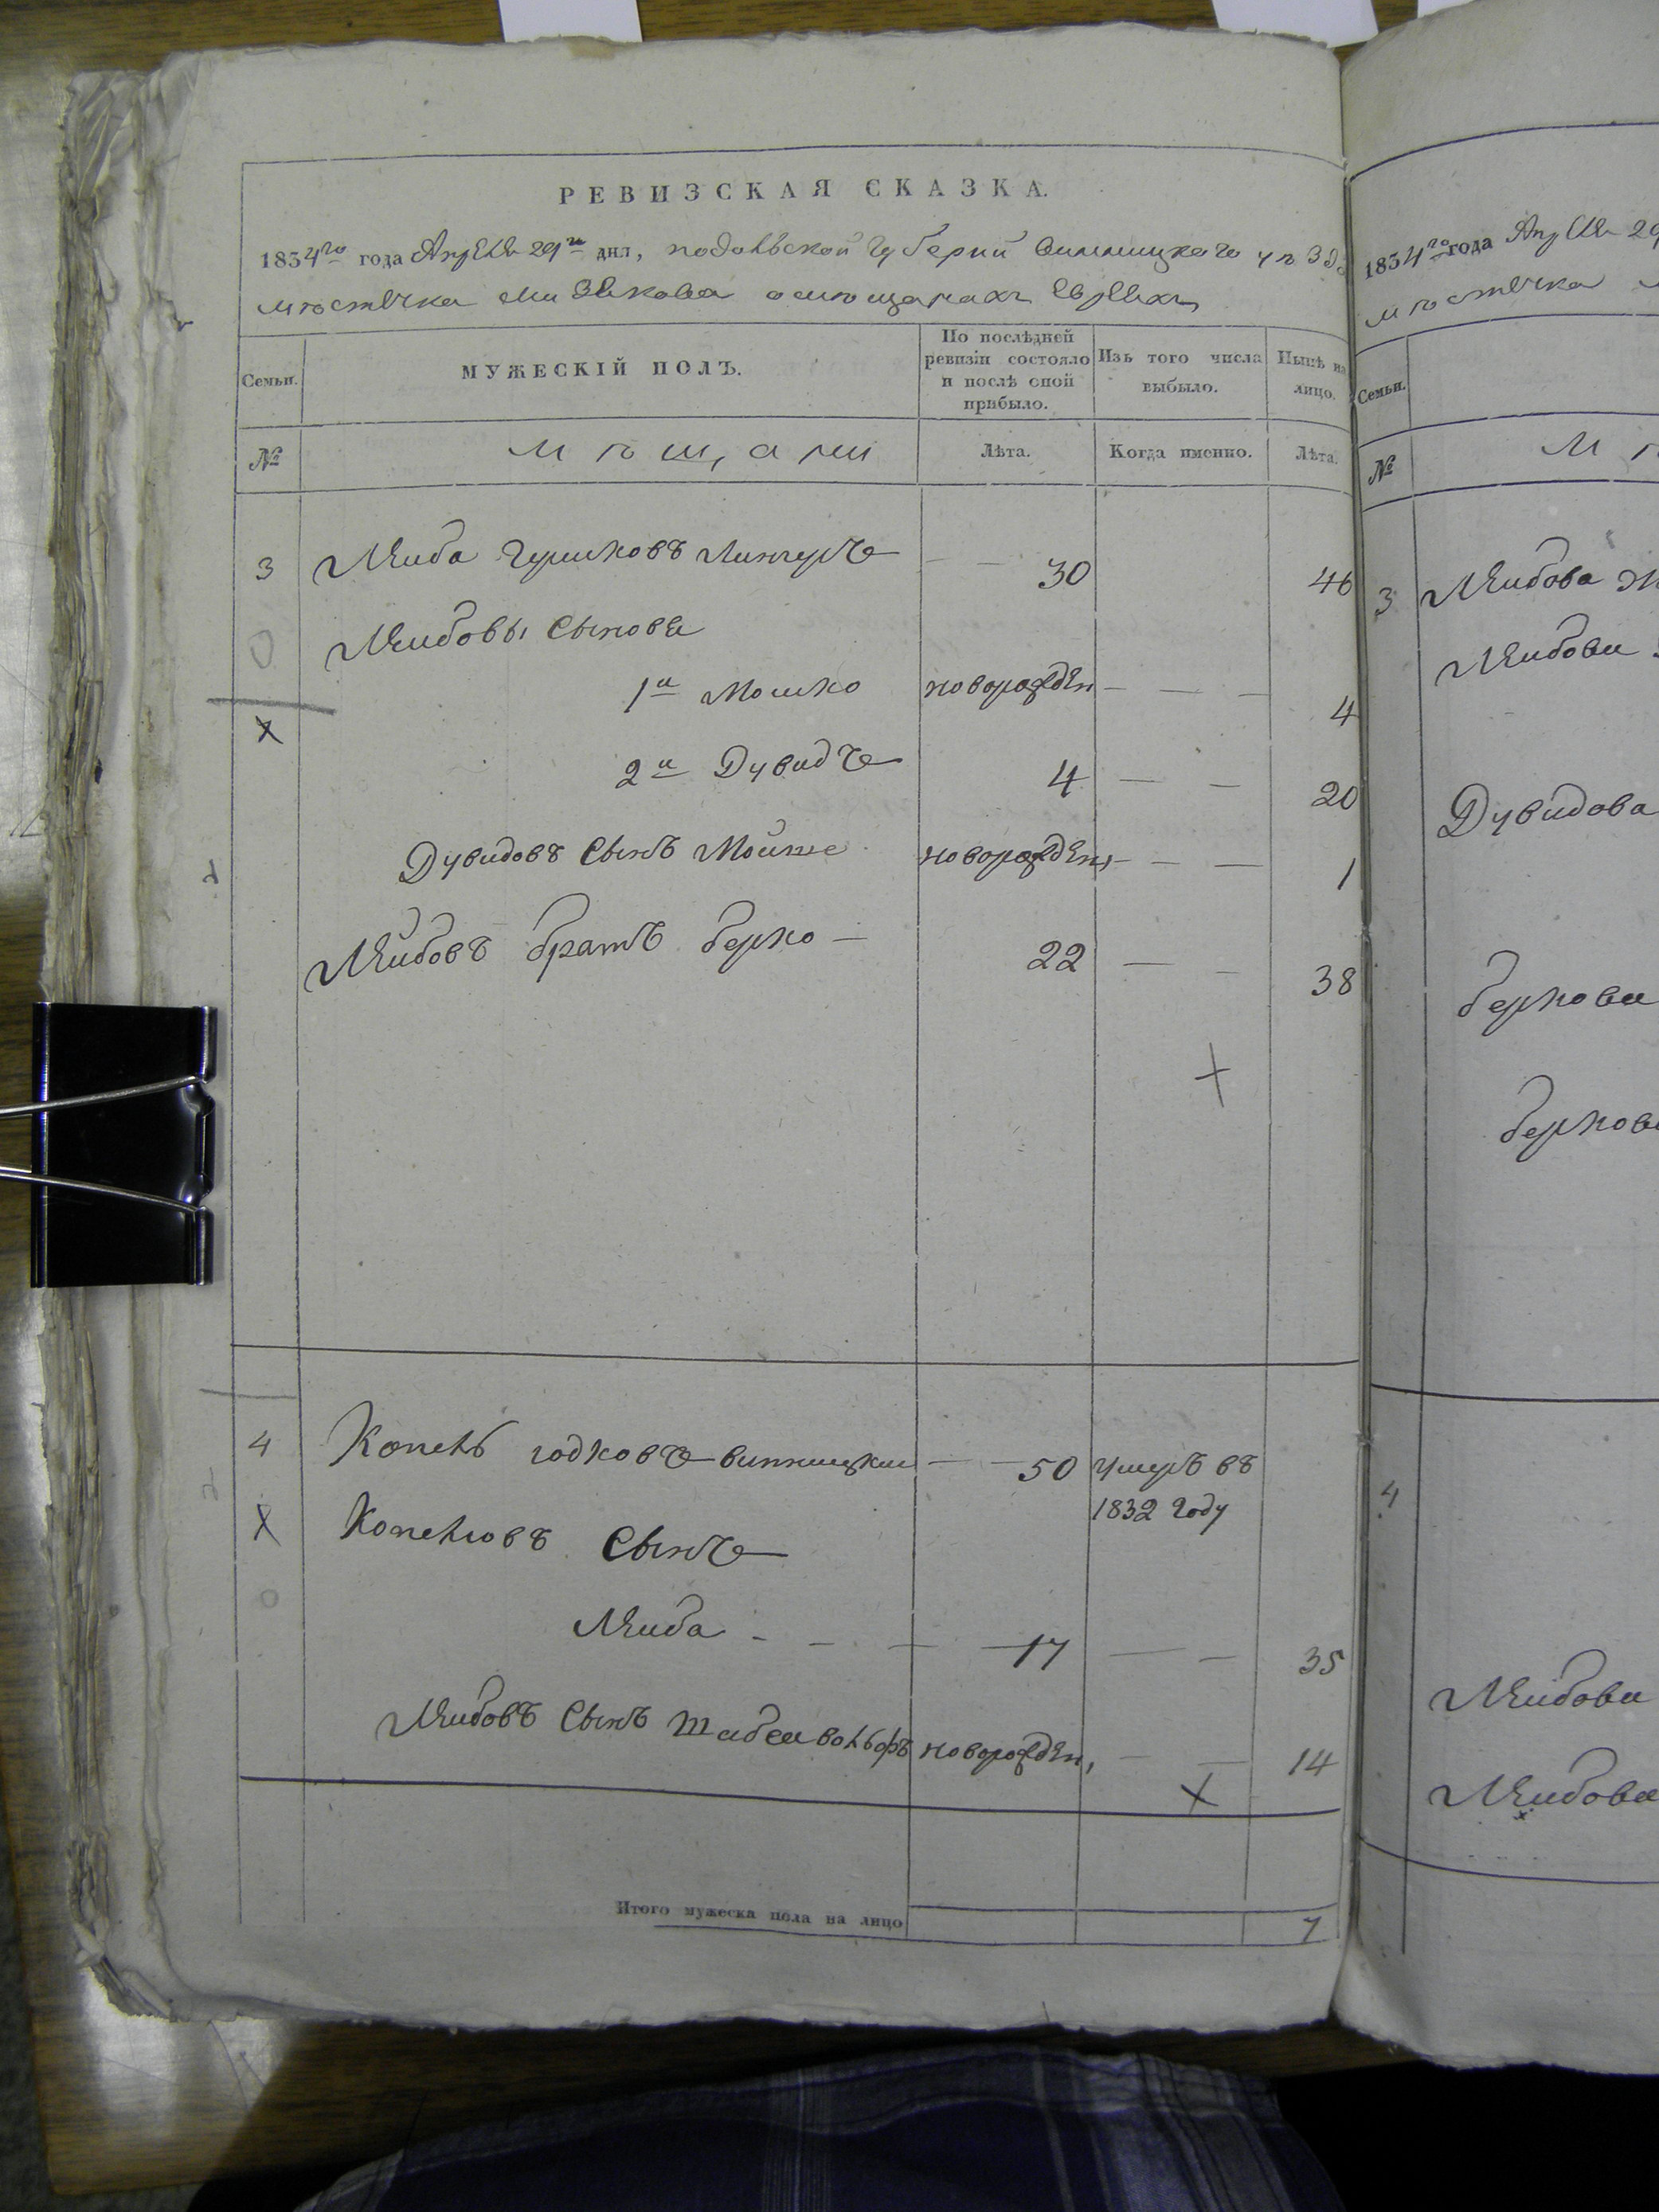 РЕВИЗСКАЯ СКАЗКА.
1834го года Апреля 29го дня, подольской губернии винницкаго уезда
местечка о мещанах евреях
Семьи. МУЖЕСКІЙ ПОЛЪ. По послѣдней ревизіи состояло и послѣ оной прибыло. Изъ того числа выбыло. Нынѣ на лицо.
№ мещани Лѣта. Когда именно. Лѣта.
3 Лейба Гершковъ 30 46
Лейбовы сынове
1й Мошко новорожден 4
2й Дувидъ 4 20
Дувидовъ сынъ Мойше новорожден, 1
Лейбовъ братъ берко 22 38
4 Копель годковъ винницкий 50 умеръ въ
1832 году
Копелювъ сынъ
Лейба 17 35
Лейбовъ сынъ вольфъ новорожден, 14
Итого мужеска пола на лицо 7
1834го года Апреля 29
местечка
Семьи.
№ М
3 Лейбова
Лейбови
Дувидова
беркови
4
Лейбови
Лейбови